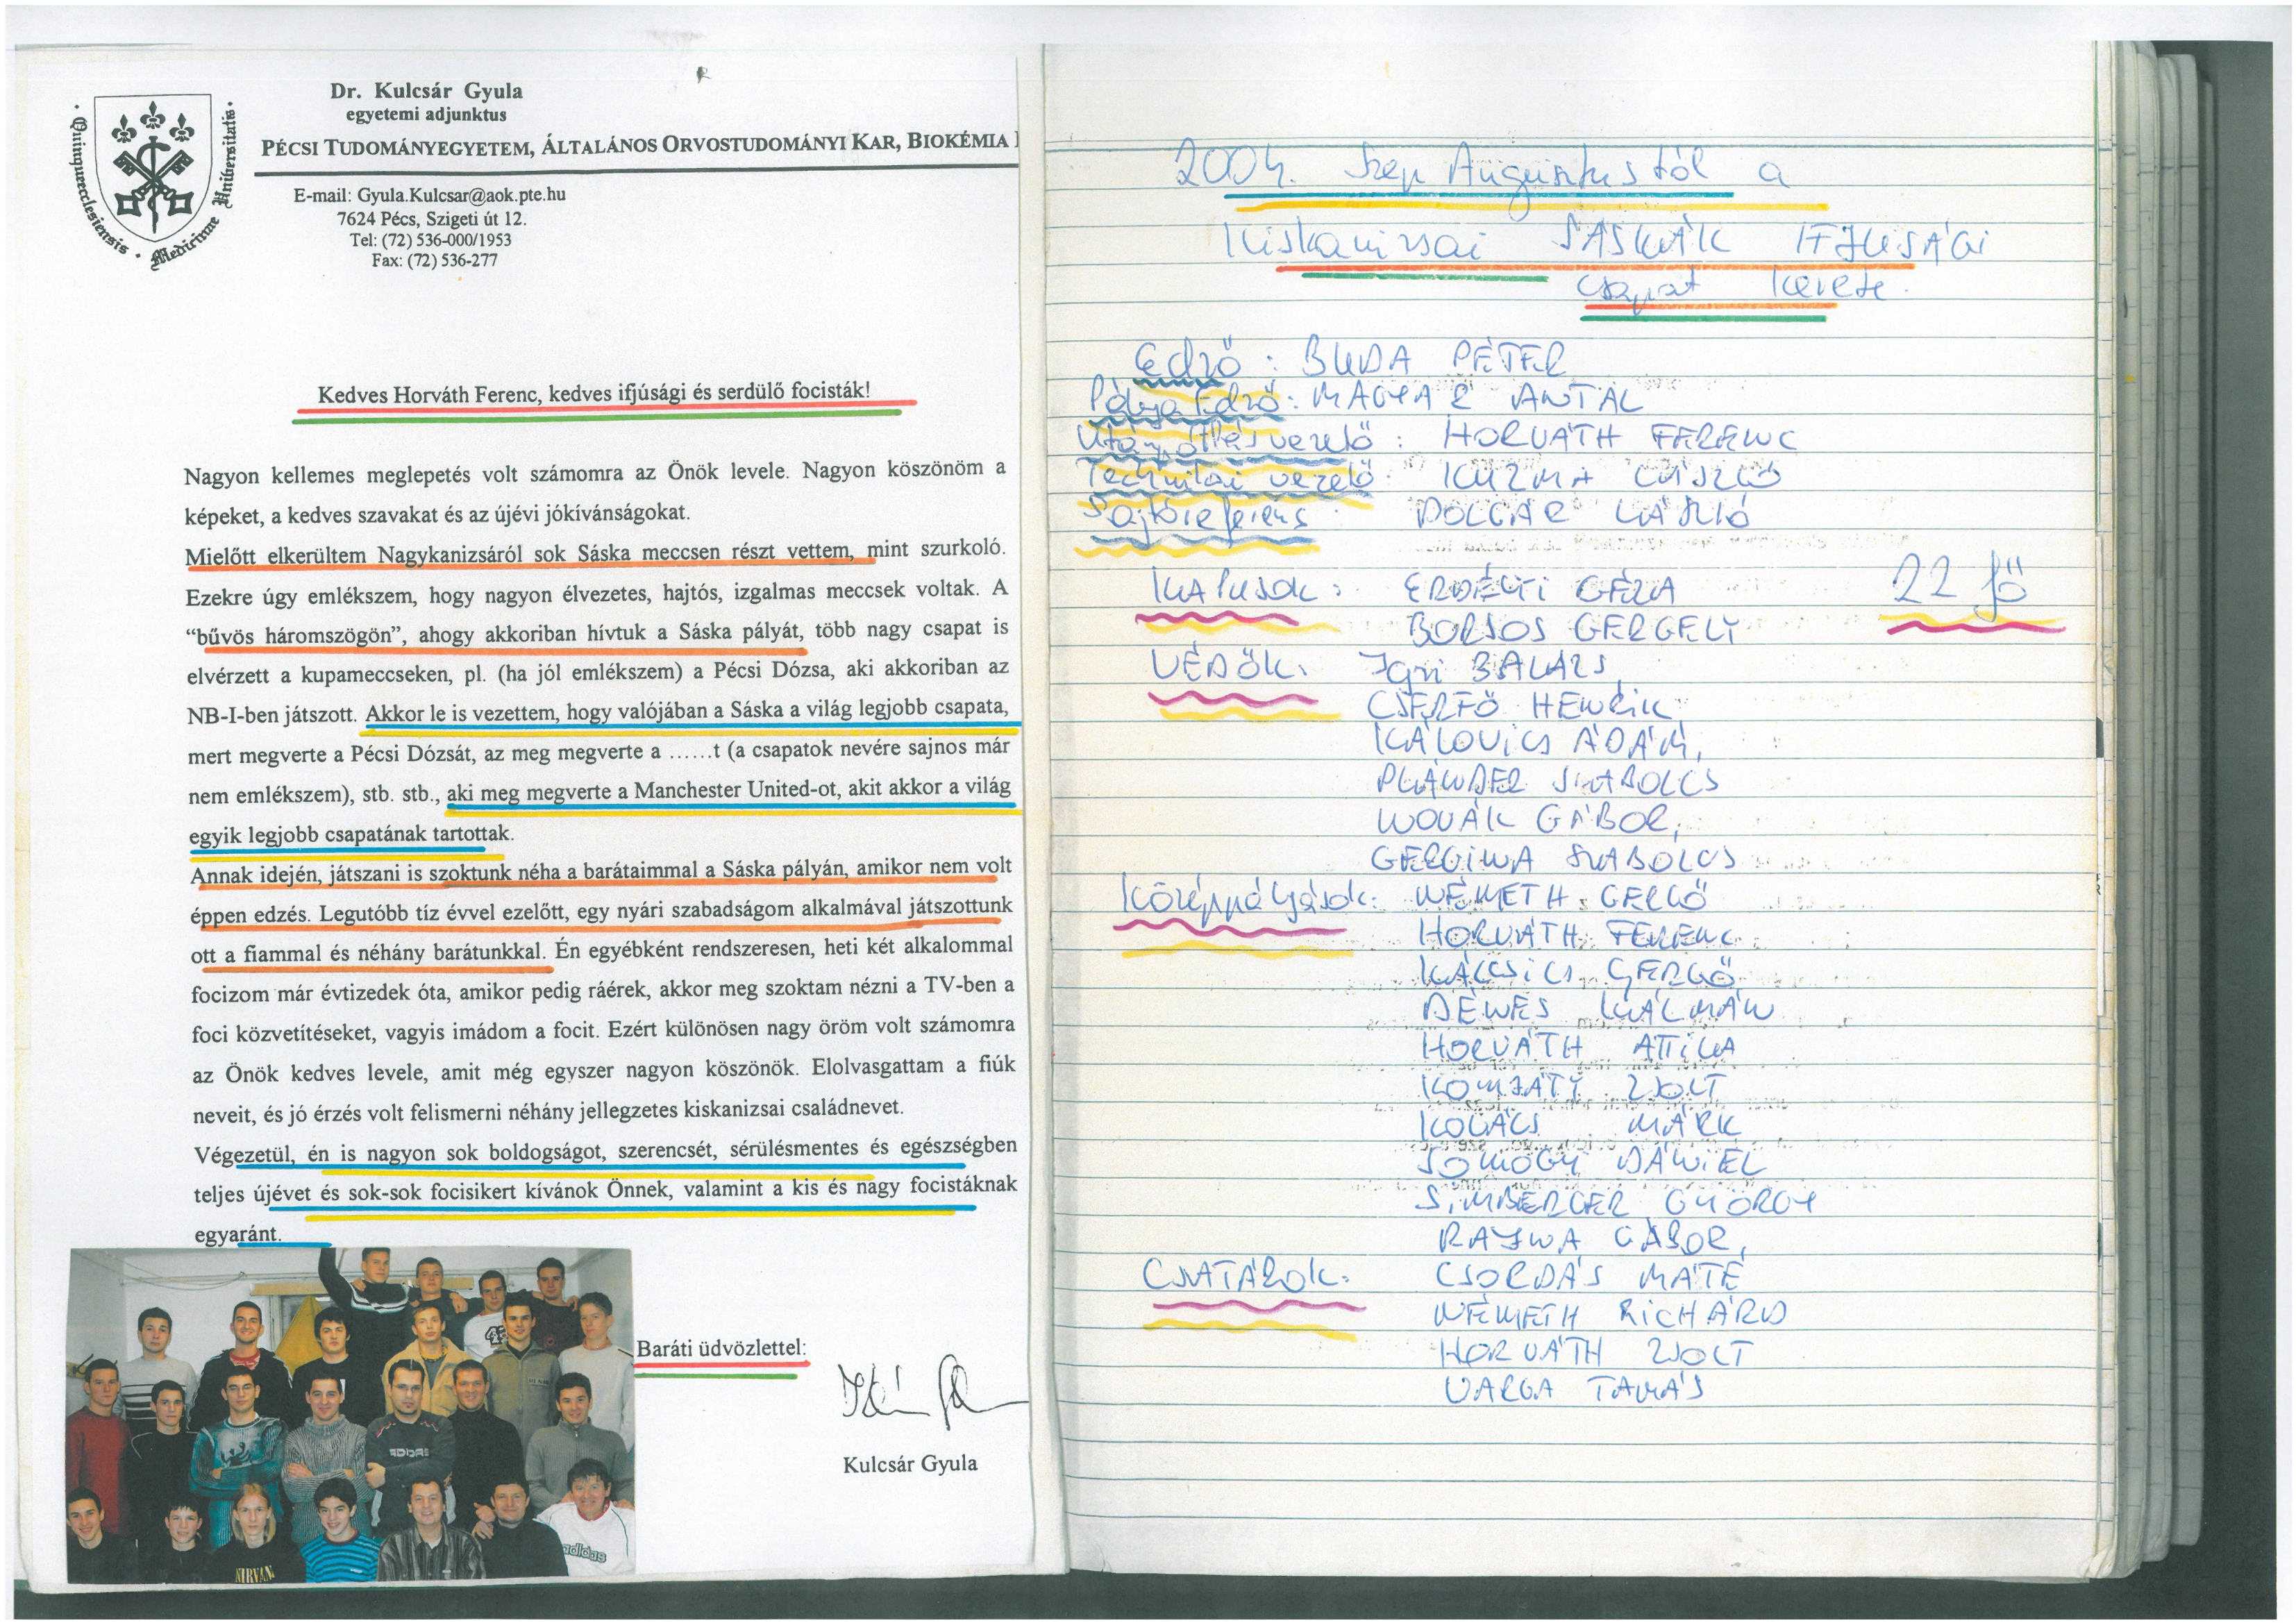 Dr. Kulcsár Gyula
egyetemi adjunktus
PÉCSI TUDOMÁNYEGYETEM, ÁLTALÁNOS ORVOSTUDOMÁNYI KAR, BIOKÉMIA
Quinqueecclesiensis · Medicinae Universitatis
E-mail: Gyula.Kulcsar@aok.pte.hu
7624 Pécs, Szigeti út 12.
Tel: (72) 536-000/1953
Fax: (72) 536-277
Kedves Horváth Ferenc, kedves ifjúsági és serdülő focisták!
Nagyon kellemes meglepetés volt számomra az Önök levele. Nagyon köszönöm a
képeket, a kedves szavakat és az újévi jókívánságokat.
Mielőtt elkerültem Nagykanizsáról sok Sáska meccsen részt vettem, mint szurkoló.
Ezekre úgy emlékszem, hogy nagyon élvezetes, hajtós, izgalmas meccsek voltak. A
“bűvös háromszögön”, ahogy akkoriban hívtuk a Sáska pályát, több nagy csapat is
elvérzett a kupameccseken, pl. (ha jól emlékszem) a Pécsi Dózsa, aki akkoriban az
NB-I-ben játszott. Akkor le is vezettem, hogy valójában a Sáska a világ legjobb csapata,
mert megverte a Pécsi Dózsát, az meg megverte a ......t (a csapatok nevére sajnos már
nem emlékszem), stb. stb., aki meg megverte a Manchester United-ot, akit akkor a világ
egyik legjobb csapatának tartottak.
Annak idején, játszani is szoktunk néha a barátaimmal a Sáska pályán, amikor nem volt
éppen edzés. Legutóbb tíz évvel ezelőtt, egy nyári szabadságom alkalmával játszottunk
ott a fiammal és néhány barátunkkal. Én egyébként rendszeresen, heti két alkalommal
focizom már évtizedek óta, amikor pedig ráérek, akkor meg szoktam nézni a TV-ben a
foci közvetítéseket, vagyis imádom a focit. Ezért különösen nagy öröm volt számomra
az Önök kedves levele, amit még egyszer nagyon köszönök. Elolvasgattam a fiúk
neveit, és jó érzés volt felismerni néhány jellegzetes kiskanizsai családnevet.
Végezetül, én is nagyon sok boldogságot, szerencsét, sérülésmentes és egészségben
teljes újévet és sok-sok focisikert kívánok Önnek, valamint a kis és nagy focistáknak
egyaránt.
Baráti üdvözlettel:
Kulcsár Gyula
adidas
adidas
NIRVANA
2004. Szep Augusztustól a
Kiskanizsai SÁSKÁK IFJUSÁGI
csapat kerete.
Edző: BUDA PÉTER
Pálya Edző: MAGYAR ANTAL
Utánpótlásvezető: HORVÁTH FERENC
Technikai vezető: KUZMA LÁSZLÓ
Sajtóreferens: POLGÁR LÁSZLÓ
22 fő
KAPUSOK: ERDÉLYI GÉZA
BORSOS GERGELY
VÉDŐK: Igri BALÁZS,
CSERFŐ HENRIK
KÁLOVICS ÁDÁM,
PLÁNDER SZABOLCS
NOVÁK GÁBOR,
GERGINA SZABOLCS
Középpályások: NÉMETH GERGŐ
HORVÁTH FERENC
KÁLCSICS GERGŐ
DÉNES KÁLMÁN
HORVÁTH ATTILA
KOMJÁTI ZSOLT
KOVÁCS MÁRK
SOMOGYI DÁNIEL
SIMBERGER GYÖRGY
RAJNA GÁBOR,
CSATÁROK: CSORDÁS MÁTÉ
NÉMETH RICHÁRD
HORVÁTH ZSOLT
VARGA TAMÁS